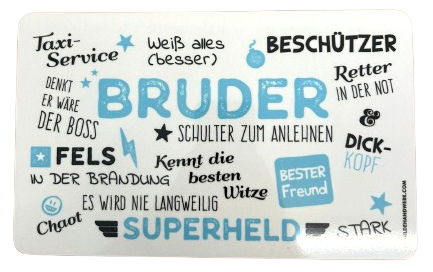 Taxi-
Service
Weiß alles
(besser)
BESCHÜTZER
Retter
IN DER NOT
DENKT
ER WÄRE
DER BOSS
BRUDER
&
SCHULTER ZUM ANLEHNEN
DICK-
KOPF
FELS
IN DER BRANDUNG
Kennt die
besten
Witze
BESTER
Freund
ES WIRD NIE LANGWEILIG
Chaot
SUPERHELD
STARK